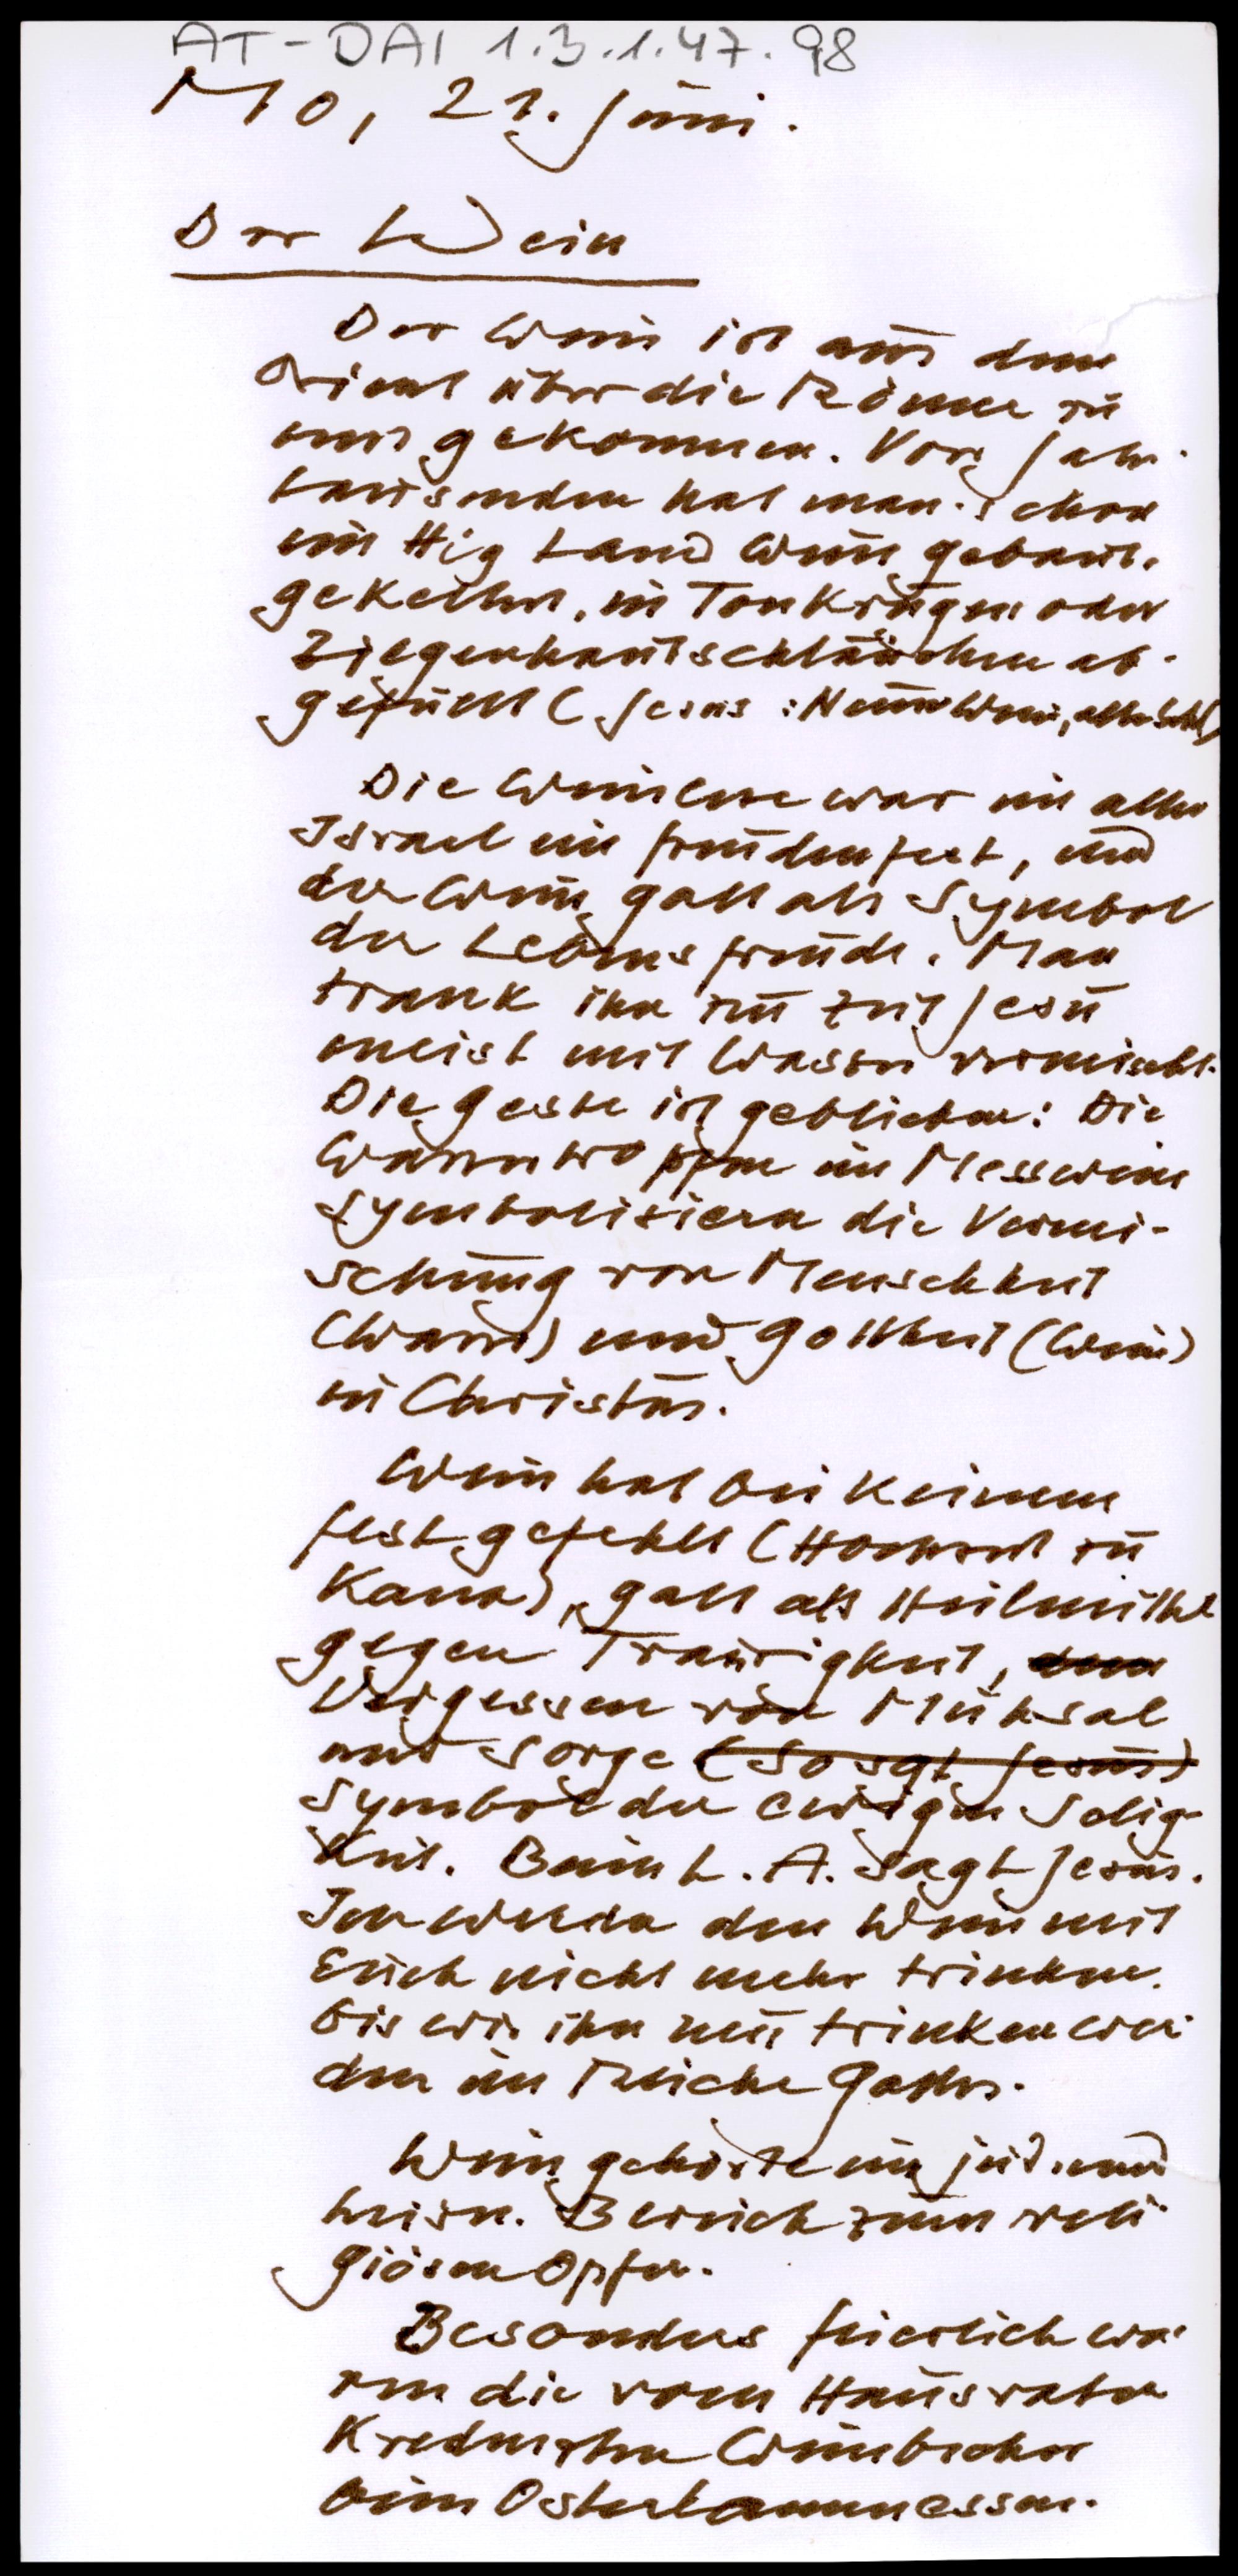 AT-DAI 1.3.1.47.98
Mo, 21. Juni.
Der Wein
Der Wein ist aus dem
Orient über die Römer zu
uns gekommen. Vor Jahr-
tausenden hat man schon
im Hlg Land Wein gebaut,
gekeltert, in Tonkrügen oder
Ziegenhautschläuchen ab-
gefüllt (Jesus: Neuer Wein, alte Schl)
Die Weinlese war im alten
Israel ein Freudenfest, und
der Wein galt als Symbol
der Lebensfreude. Man
trank ihn zu Zeit Jesu
meist mit Wasser vermischt.
Die Geste ist geblieben: Die
Wassertropfen im Messwein
symbolisieren die Vermi-
schung von Menschheit
(Wasser) und Gottheit (Wein)
in Christus.
Wein hat bei keinem
Fest gefehlt (Hochzeit zu
Kana), galt als Heilmittel
gegen Traurigkeit,
Vergessen von Mühsal
und Sorge (so sgt Jesus)
Symbol der ewigen Selig-
keit. Beim L. A. sagt Jesus.
Ich werde den Wein mit
Euch nicht mehr trinken.
bis wir ihn neu trinken wer-
den im Reiche Gottes.
Wein gehörte im jüd. und
heidn. Bereich zum reli-
giösen Opfer.
Besonders feierlich wa-
ren die vom Hausvater
kredenzten Weinbecher
beim Osterlammessen.